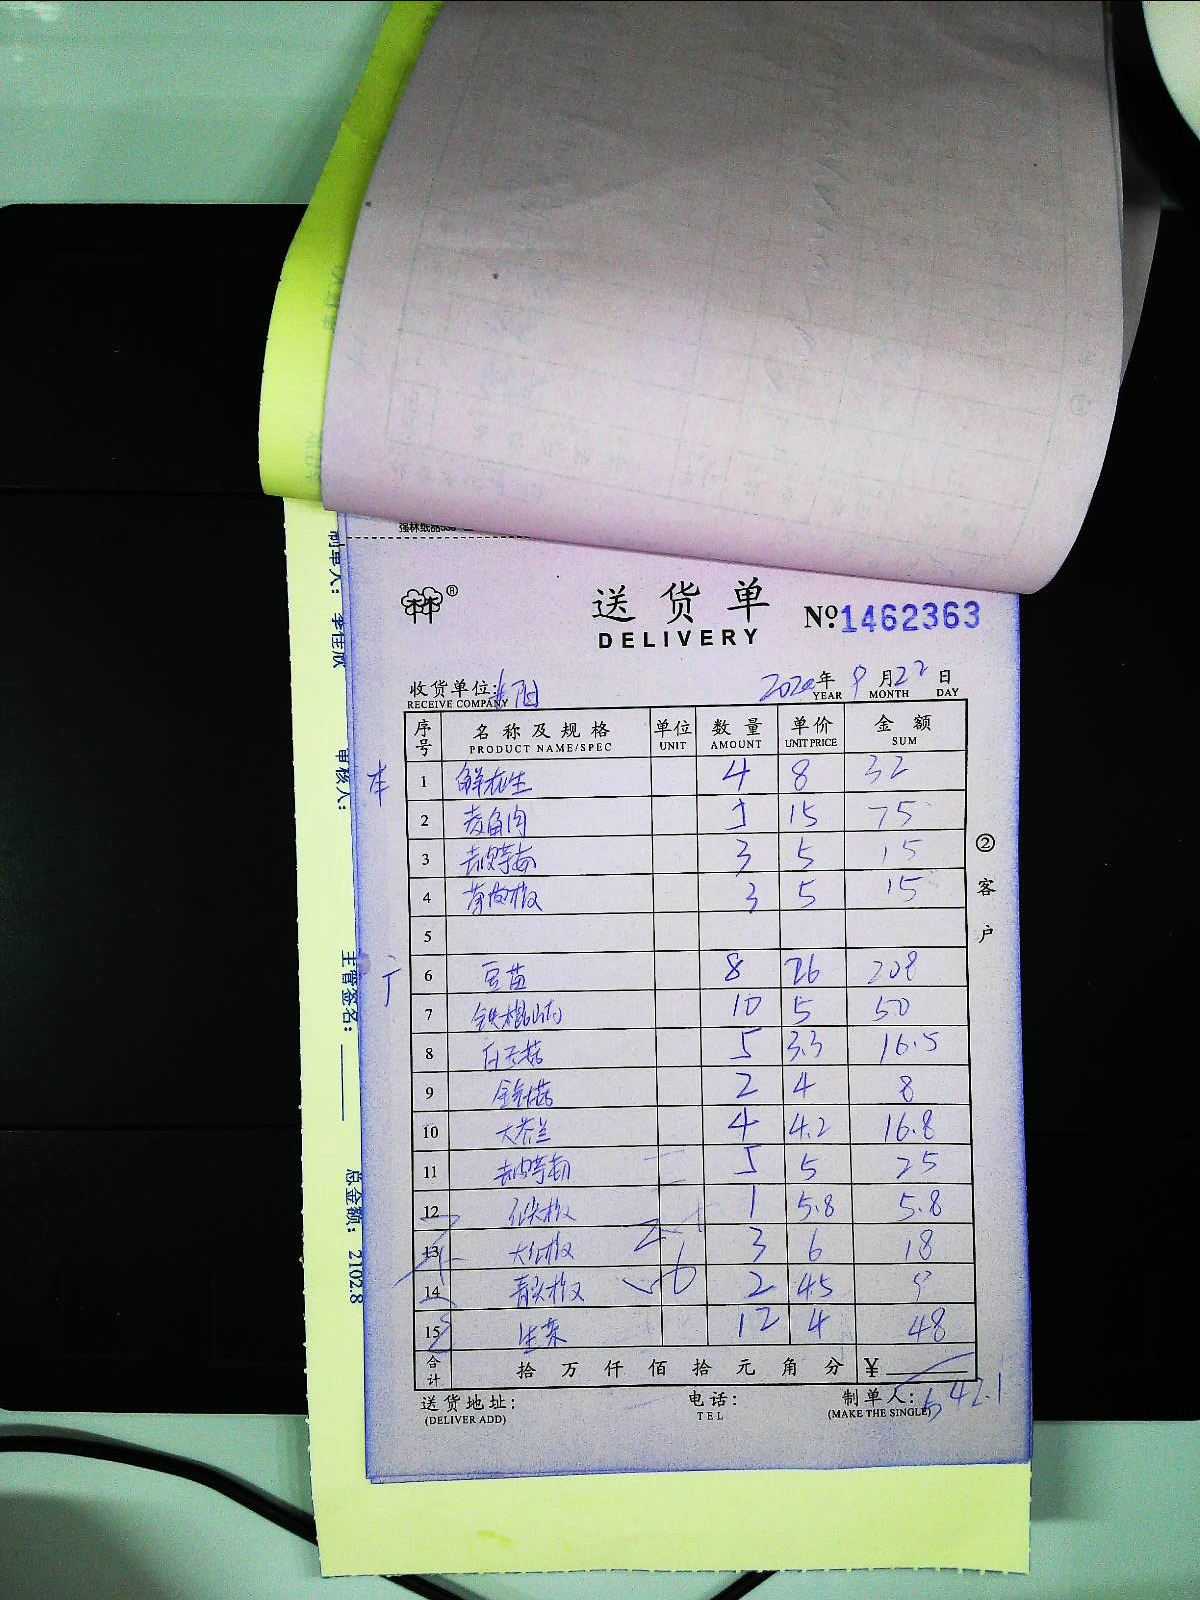 强林纸品
制单人: 李佳欣
审核人:
主管签名:
总金额: 2102.8
林 ®
送货单
DELIVERY
№ 1462363
收货单位:
RECEIVE COMPANY
2020年 9月22日
YEAR MONTH DAY
序号 名称及规格 单位 数量 单价 金额
PRODUCT NAME/SPEC UNIT AMOUNT UNIT PRICE SUM
本
1 鲜花生 4 8 32
2 菱角肉 5 15 75
3 去皮芋艿 3 5 15
4 薄皮椒 3 5 15
5
6 豆苗 8 26 208
7 铁棍山药 10 5 50
8 白玉菇 5 3.3 16.5
9 金针菇 2 4 8
10 大芥兰 4 4.2 16.8
11 去皮芋艿 5 5 25
12 红尖椒 1 5.8 5.8
13 大红椒 3 6 18
14 青尖椒 2 4.5 9
15 生菜 12 4 48
合计 拾 万 仟 佰 拾 元 角 分 ¥
642.1
送货地址: 电话: 制单人:
(DELIVER ADD) TEL (MAKE THE SINGLE)
② 客户